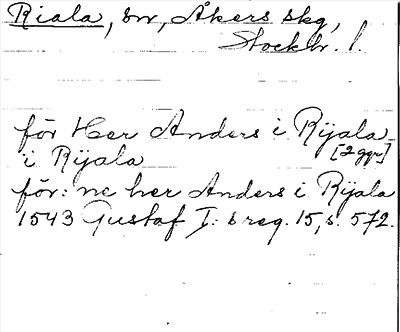 Riala, sn, Åkers skg,
Stockh. l.
för Her Anders i Rijala
i Rijala [2 ggr]
för:ne her Anders i Rijala
1543 Gustaf I:s reg. 15, s. 572.